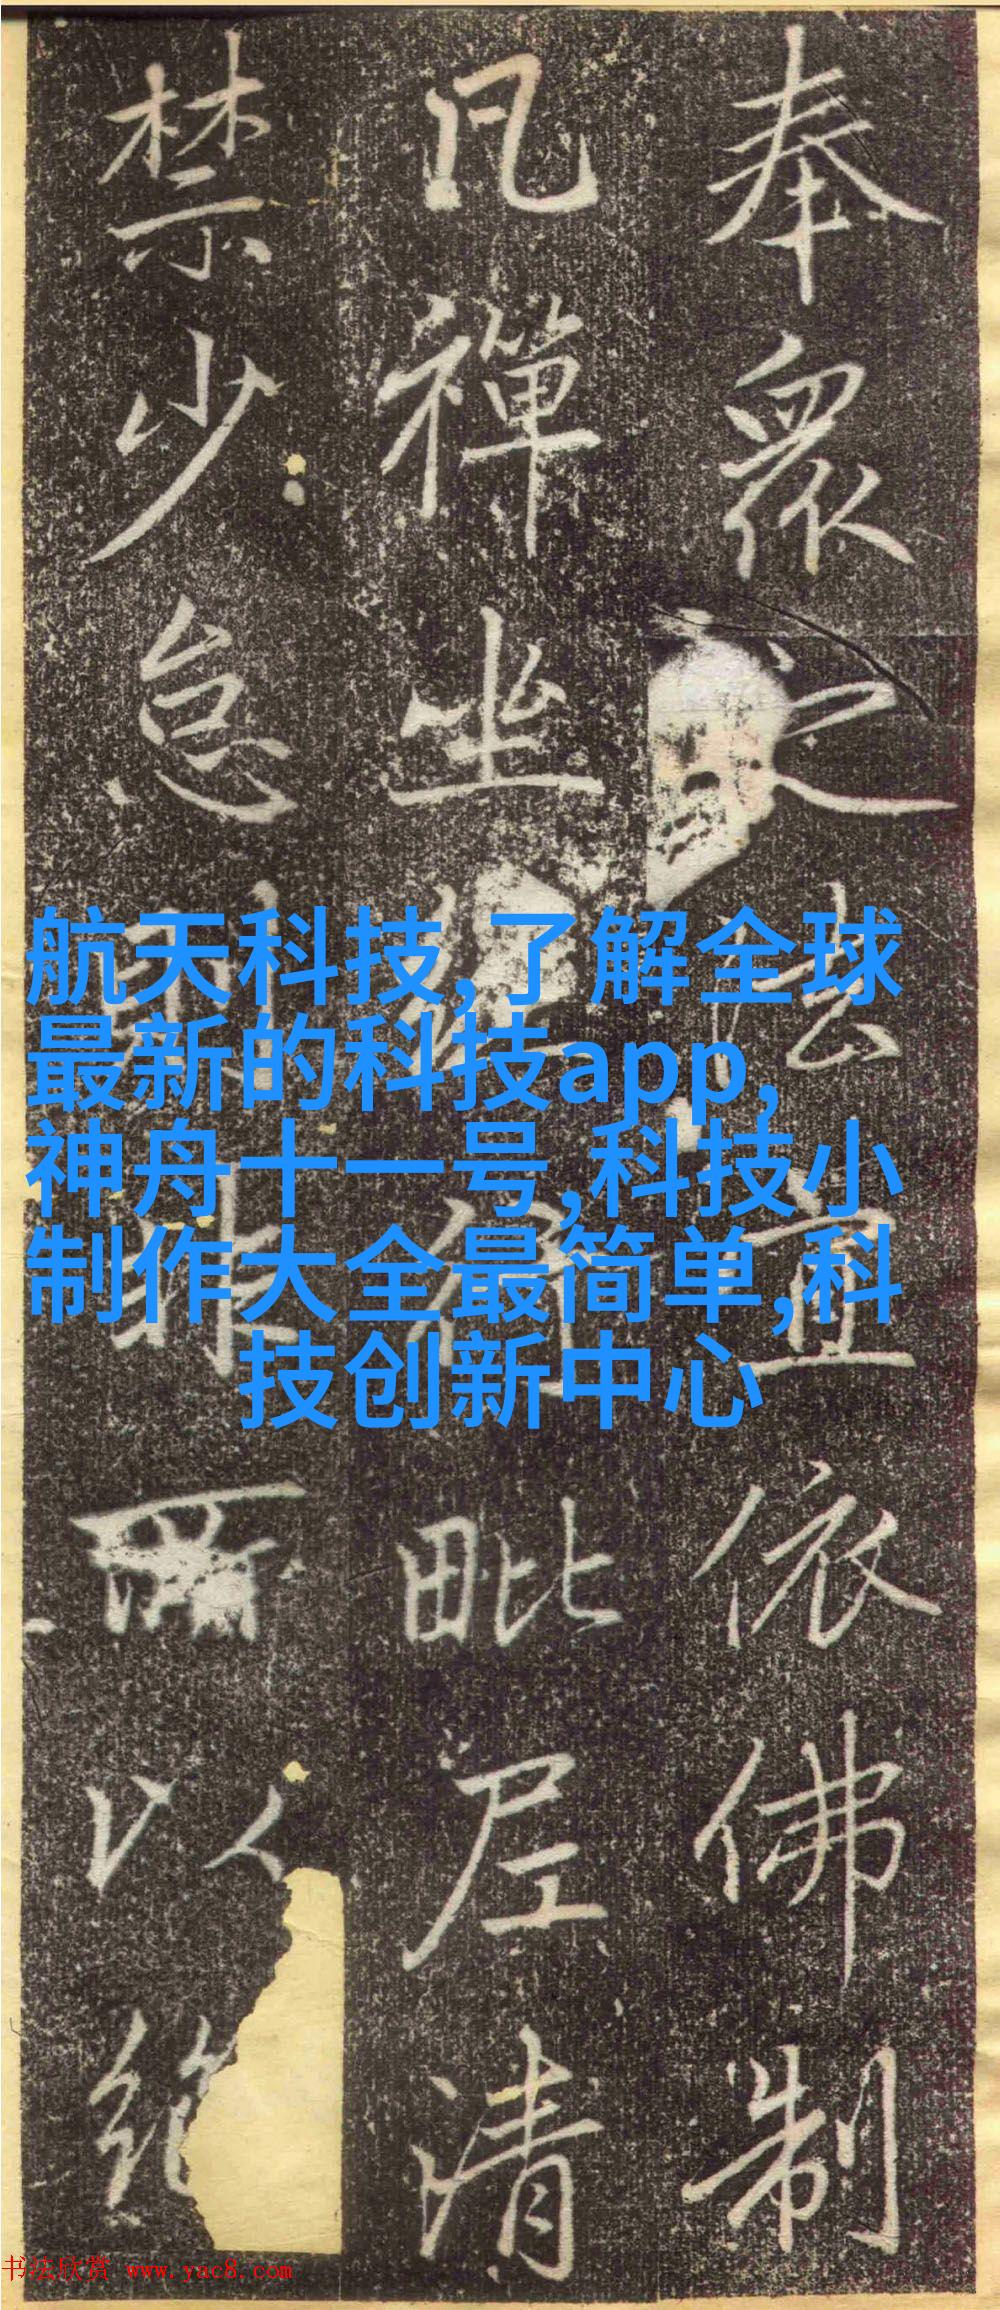 奉眾法宜依佛制
凡禪坐經行毗尼清
禁少怠則非所以紹
航天科技,了解全球
最新的科技app,
神舟十一号,科技小
制作大全最简单,科
技创新中心
书法欣赏 www.yac8.com